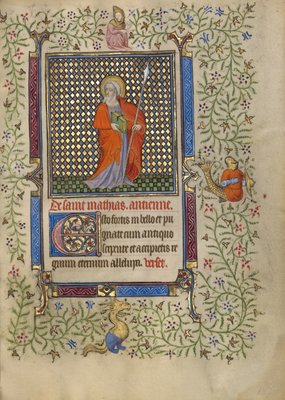 De saint mathias. antienne.
Esto fortis in bello et pu
gnate cum antiquo
serpente et accipietis re
gnum eternum alleluya. verset.